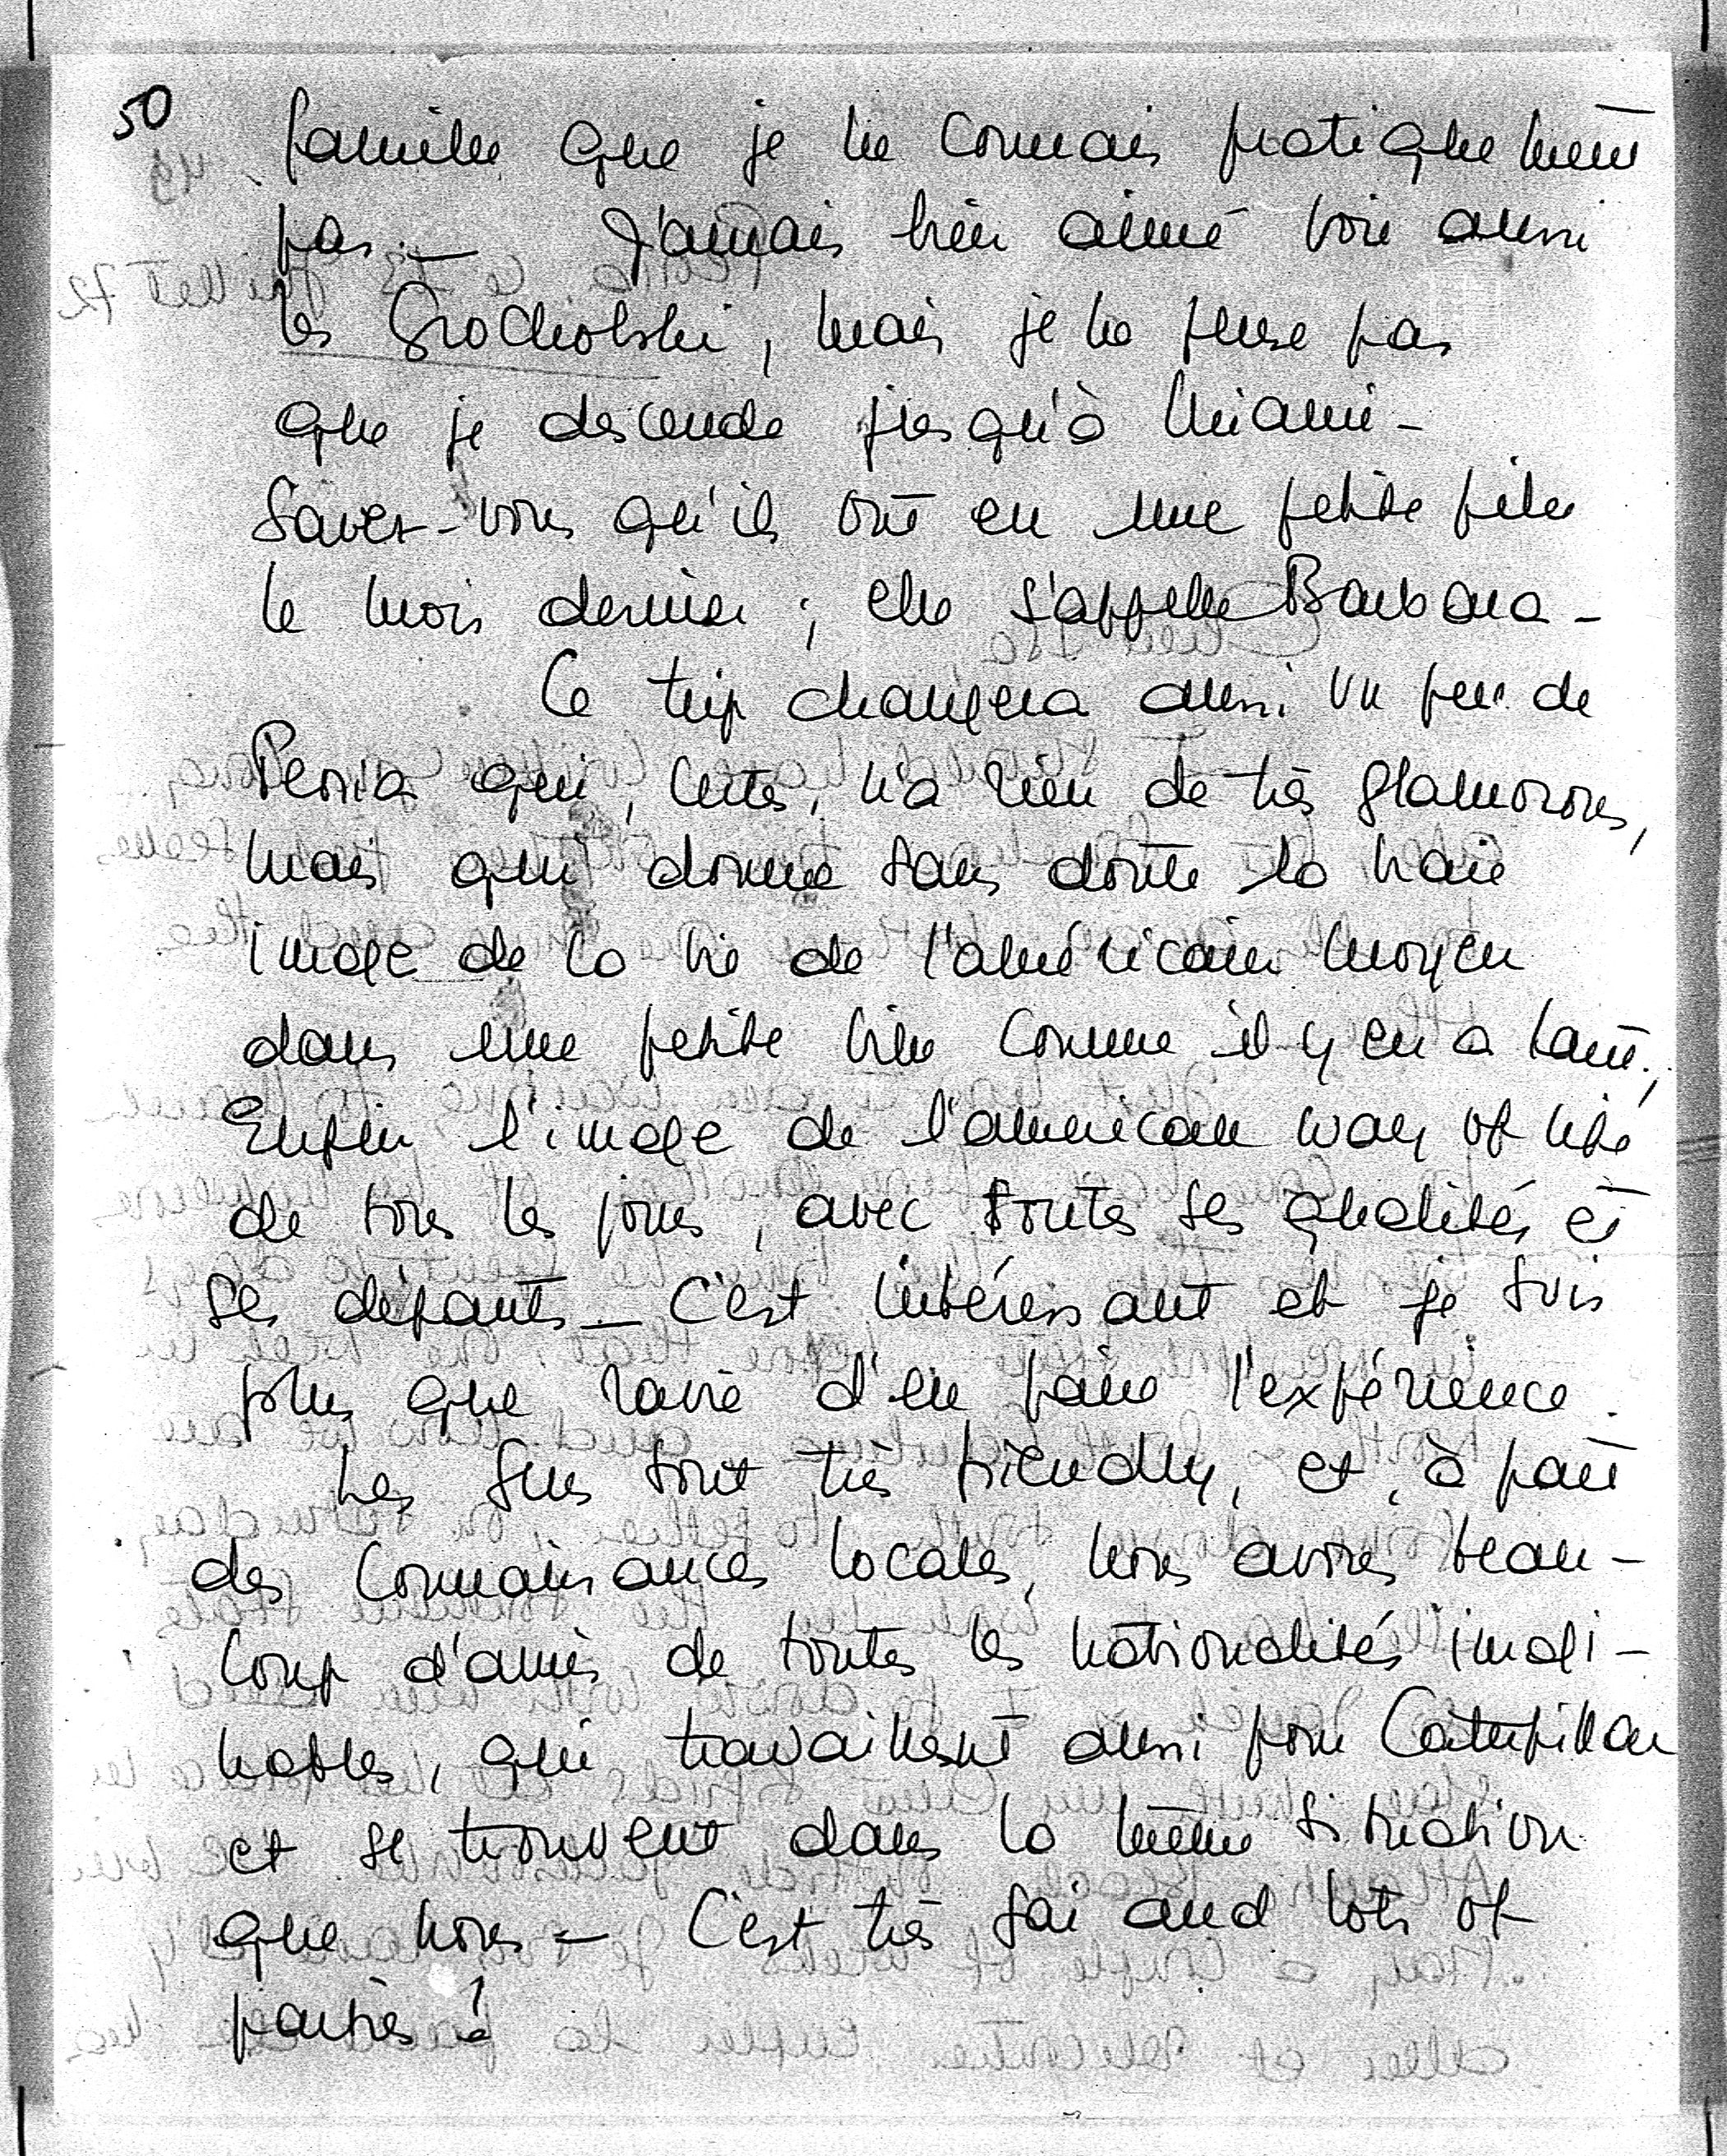 50
famille que je ne connais pratiquement
pas. — J'aurais bien aimé voir aussi
les Grocholski, mais je ne pense pas
que je descende jusqu'à Miami -
Savez-vous qu'ils ont eu une petite fille
le mois dernier ; elle s'appelle Barbara -
Ce trip changera aussi un peu de
Peoria qui, certes, n'a rien de très glamorous,
mais qui donne sans doute la vraie
image de la vie de l'américain moyen
dans une petite ville comme il y en a tant,
Enfin l'image de l'american way of life
de tous les jours, avec toutes ses qualités et
ses défauts - C'est intéressant et je suis
plus que ravie d'en faire l'expérience.
Les gens sont très friendly, et, à part
des connaissances locales, nous avons beau-
coup d'amis de toutes les nationalités imagi-
nables, qui travaillent aussi pour Caterpillar
et se trouvent dans la même situation
que nous - C'est très gai and lots of
parties !